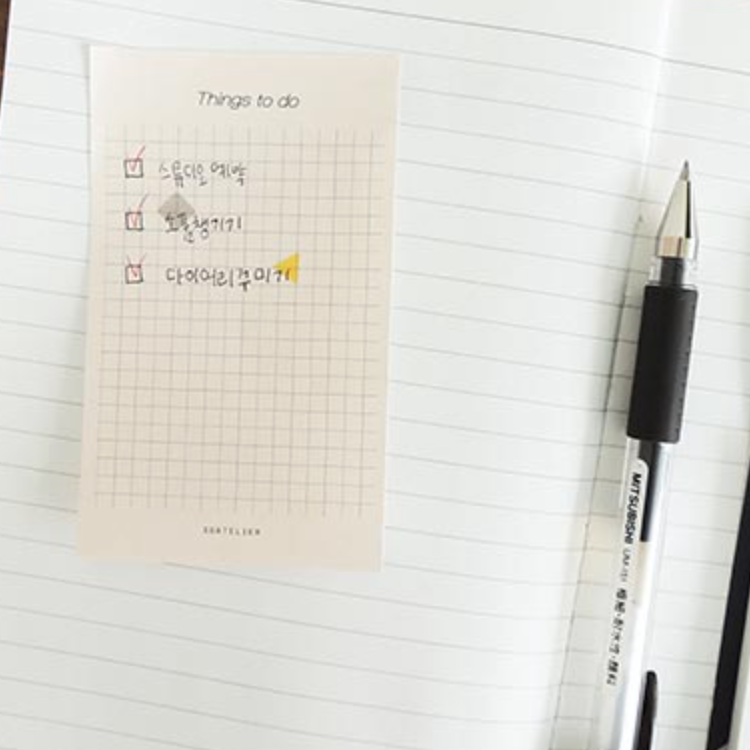 Things to do
스튜디오 예약
소품챙기기
다이어리꾸미기
MITSUBISHI UM-151